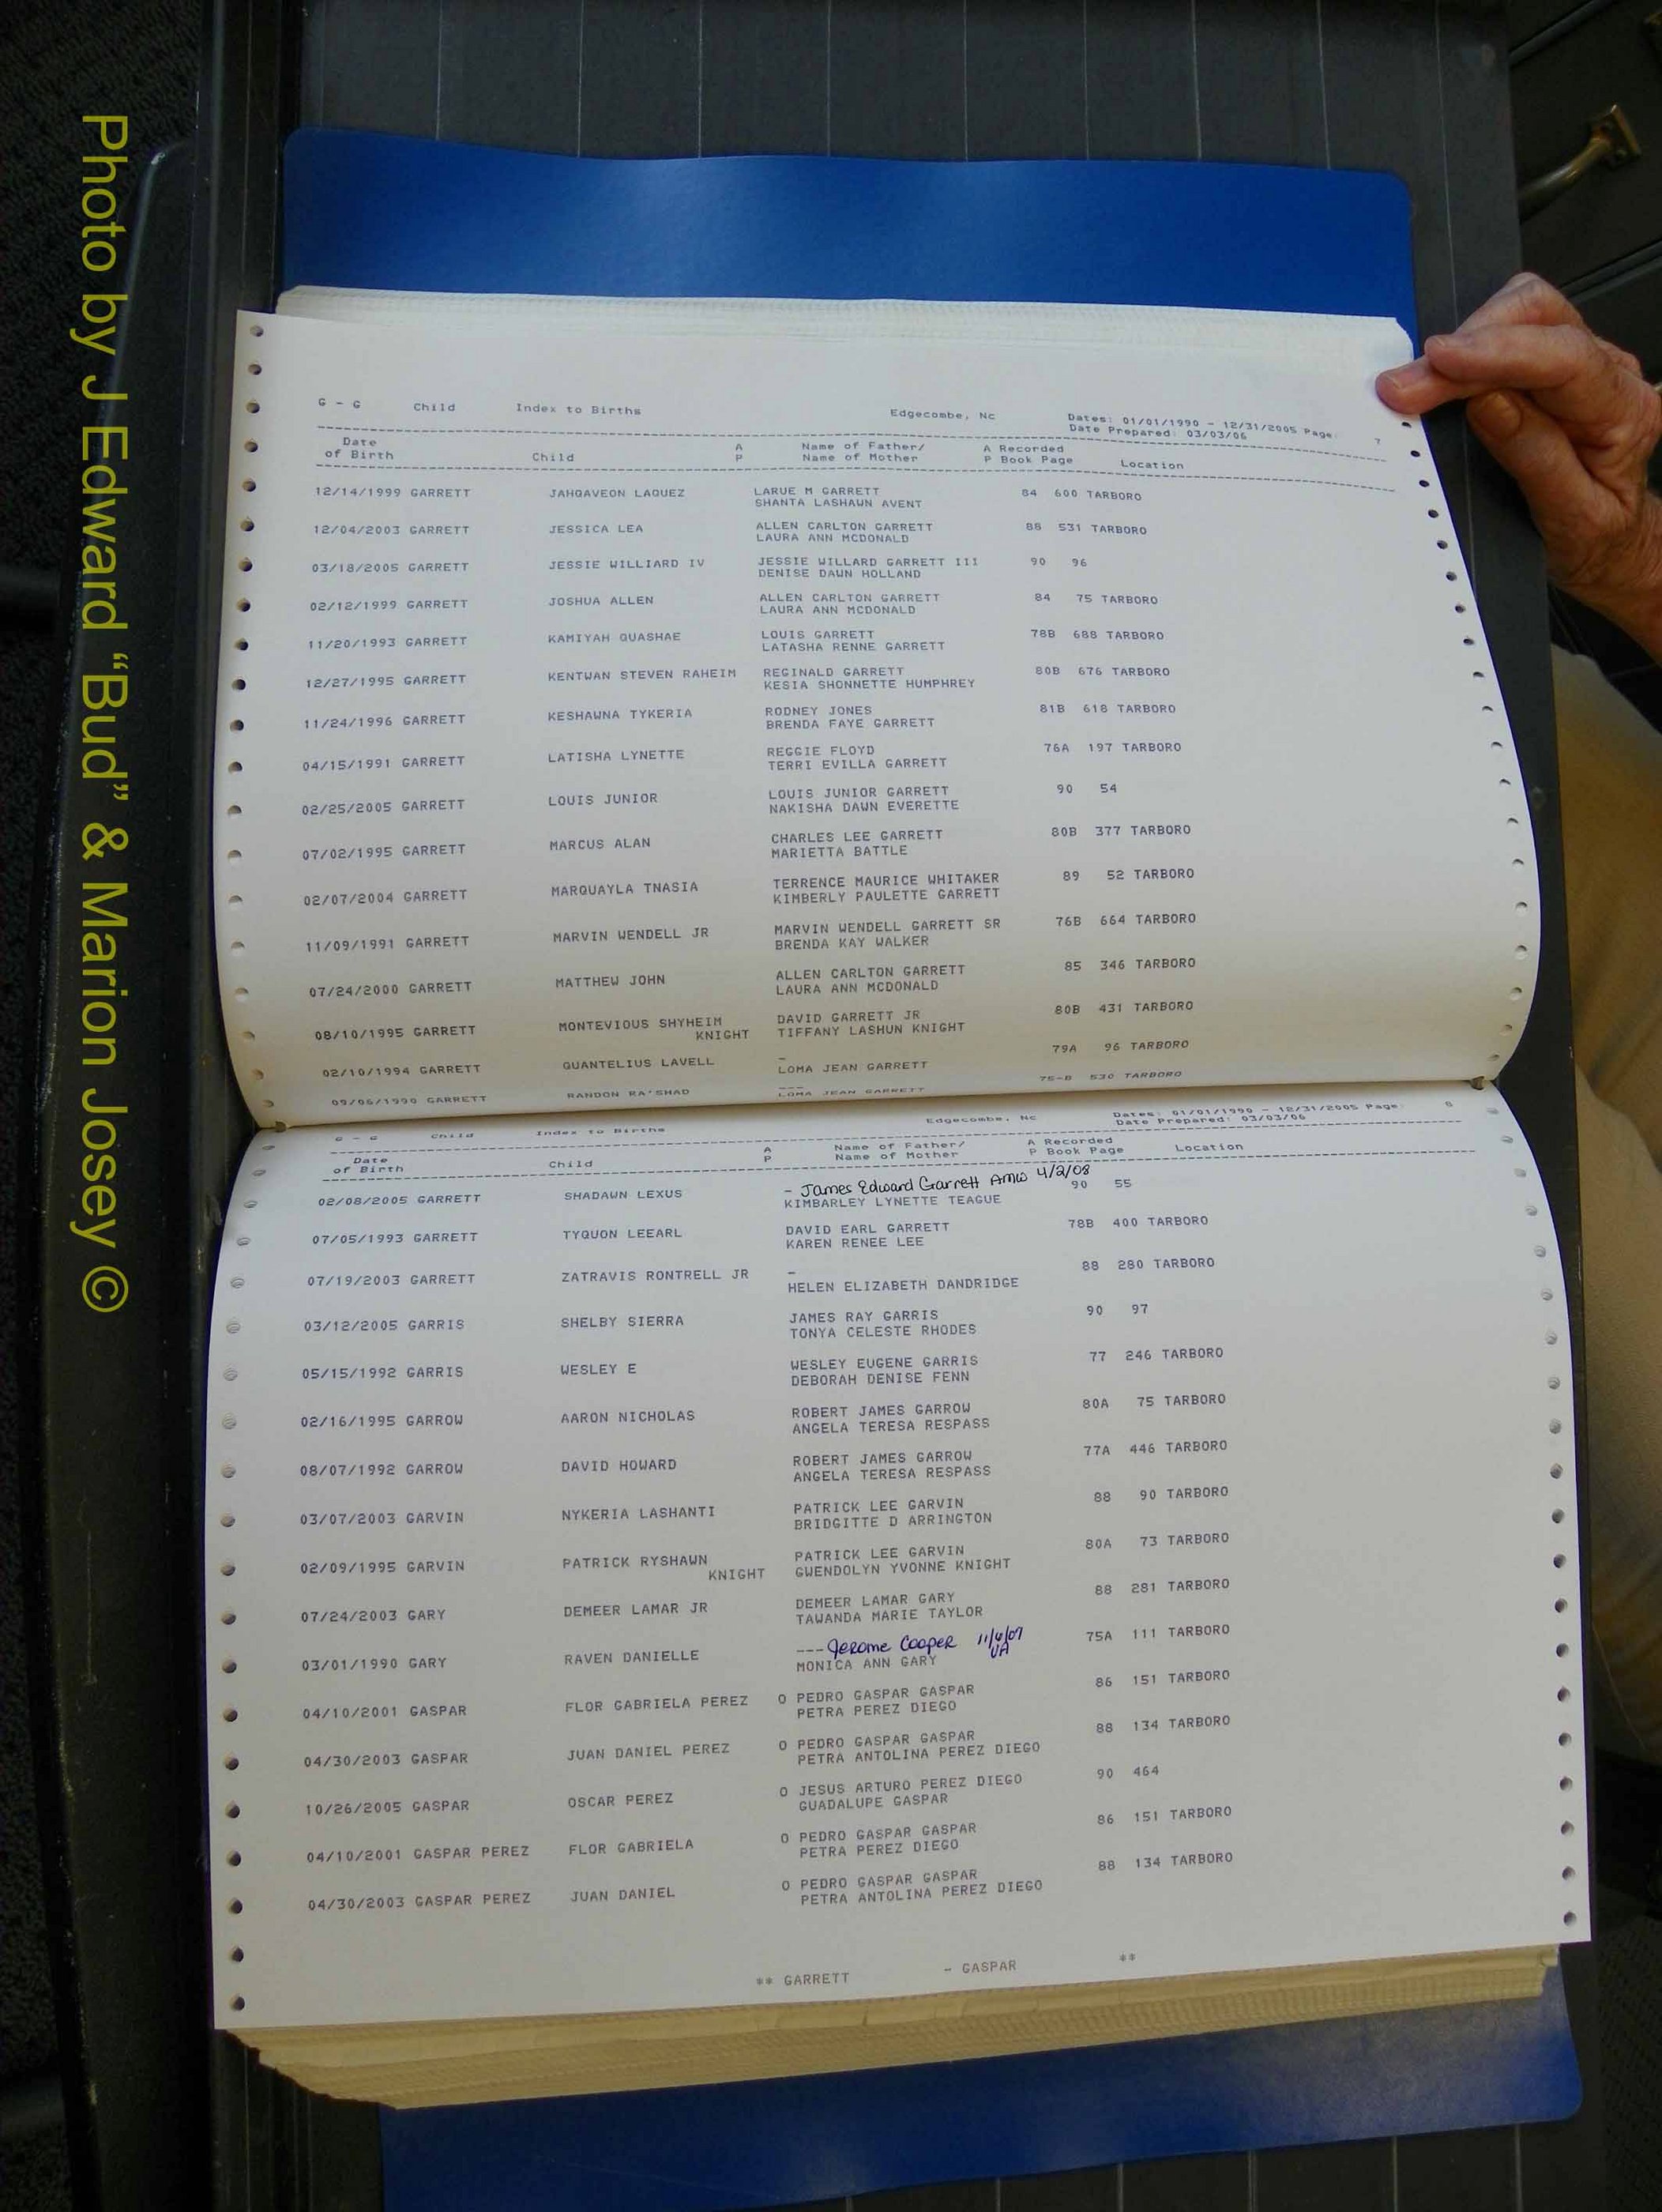 Photo by J Edward “Bud” & Marion Josey ©
G - G Child Index to Births Edgecombe, Nc Dates: 01/01/1990 - 12/31/2005 Page: 7
Date Prepared: 03/03/06
Date A Name of Father/ A Recorded
of Birth Child P Name of Mother P Book Page Location
12/14/1999 GARRETT JAHQAVEON LAQUEZ LARUE M GARRETT 84 600 TARBORO
SHANTA LASHAWN AVENT
12/04/2003 GARRETT JESSICA LEA ALLEN CARLTON GARRETT 88 531 TARBORO
LAURA ANN MCDONALD
03/18/2005 GARRETT JESSIE WILLIARD IV JESSIE WILLARD GARRETT III 90 96
DENISE DAWN HOLLAND
02/12/1999 GARRETT JOSHUA ALLEN ALLEN CARLTON GARRETT 84 75 TARBORO
LAURA ANN MCDONALD
11/20/1993 GARRETT KAMIYAH QUASHAE LOUIS GARRETT 78B 688 TARBORO
LATASHA RENNE GARRETT
12/27/1995 GARRETT KENTWAN STEVEN RAHEIM REGINALD GARRETT 80B 676 TARBORO
KESIA SHONNETTE HUMPHREY
11/24/1996 GARRETT KESHAWNA TYKERIA RODNEY JONES 81B 618 TARBORO
BRENDA FAYE GARRETT
04/15/1991 GARRETT LATISHA LYNETTE REGGIE FLOYD 76A 197 TARBORO
TERRI EVILLA GARRETT
02/25/2005 GARRETT LOUIS JUNIOR LOUIS JUNIOR GARRETT 90 54
NAKISHA DAWN EVERETTE
07/02/1995 GARRETT MARCUS ALAN CHARLES LEE GARRETT 80B 377 TARBORO
MARIETTA BATTLE
02/07/2004 GARRETT MARQUAYLA TNASIA TERRENCE MAURICE WHITAKER 89 52 TARBORO
KIMBERLY PAULETTE GARRETT
11/09/1991 GARRETT MARVIN WENDELL JR MARVIN WENDELL GARRETT SR 76B 664 TARBORO
BRENDA KAY WALKER
07/24/2000 GARRETT MATTHEW JOHN ALLEN CARLTON GARRETT 85 346 TARBORO
LAURA ANN MCDONALD
08/10/1995 GARRETT MONTEVIOUS SHYHEIM DAVID GARRETT JR 80B 431 TARBORO
KNIGHT TIFFANY LASHUN KNIGHT
02/10/1994 GARRETT QUANTELIUS LAVELL - 79A 96 TARBORO
LOMA JEAN GARRETT
09/06/1990 GARRETT RANDON RA'SHAD --- 75-B 530 TARBORO
LOMA JEAN GARRETT
G - G Child Index to Births Edgecombe, Nc Dates: 01/01/1990 - 12/31/2005 Page: 8
Date Prepared: 03/03/06
Date A Name of Father/ A Recorded
of Birth Child P Name of Mother P Book Page Location
02/08/2005 GARRETT SHADAWN LEXUS - James Edward Garrett AMW 4/2/08 90 55
KIMBARLEY LYNETTE TEAGUE
07/05/1993 GARRETT TYQUON LEEARL DAVID EARL GARRETT 78B 400 TARBORO
KAREN RENEE LEE
07/19/2003 GARRETT ZATRAVIS RONTRELL JR - 88 280 TARBORO
HELEN ELIZABETH DANDRIDGE
03/12/2005 GARRIS SHELBY SIERRA JAMES RAY GARRIS 90 97
TONYA CELESTE RHODES
05/15/1992 GARRIS WESLEY E WESLEY EUGENE GARRIS 77 246 TARBORO
DEBORAH DENISE FENN
02/16/1995 GARROW AARON NICHOLAS ROBERT JAMES GARROW 80A 75 TARBORO
ANGELA TERESA RESPASS
08/07/1992 GARROW DAVID HOWARD ROBERT JAMES GARROW 77A 446 TARBORO
ANGELA TERESA RESPASS
03/07/2003 GARVIN NYKERIA LASHANTI PATRICK LEE GARVIN 88 90 TARBORO
BRIDGITTE D ARRINGTON
02/09/1995 GARVIN PATRICK RYSHAWN PATRICK LEE GARVIN 80A 73 TARBORO
KNIGHT GWENDOLYN YVONNE KNIGHT
07/24/2003 GARY DEMEER LAMAR JR DEMEER LAMAR GARY 88 281 TARBORO
TAWANDA MARIE TAYLOR
03/01/1990 GARY RAVEN DANIELLE --- Jerome Cooper 11/6/07 VA 75A 111 TARBORO
MONICA ANN GARY
04/10/2001 GASPAR FLOR GABRIELA PEREZ O PEDRO GASPAR GASPAR 86 151 TARBORO
PETRA PEREZ DIEGO
04/30/2003 GASPAR JUAN DANIEL PEREZ O PEDRO GASPAR GASPAR 88 134 TARBORO
PETRA ANTOLINA PEREZ DIEGO
10/26/2005 GASPAR OSCAR PEREZ O JESUS ARTURO PEREZ DIEGO 90 464
GUADALUPE GASPAR
04/10/2001 GASPAR PEREZ FLOR GABRIELA O PEDRO GASPAR GASPAR 86 151 TARBORO
PETRA PEREZ DIEGO
04/30/2003 GASPAR PEREZ JUAN DANIEL O PEDRO GASPAR GASPAR 88 134 TARBORO
PETRA ANTOLINA PEREZ DIEGO
** GARRETT - GASPAR **